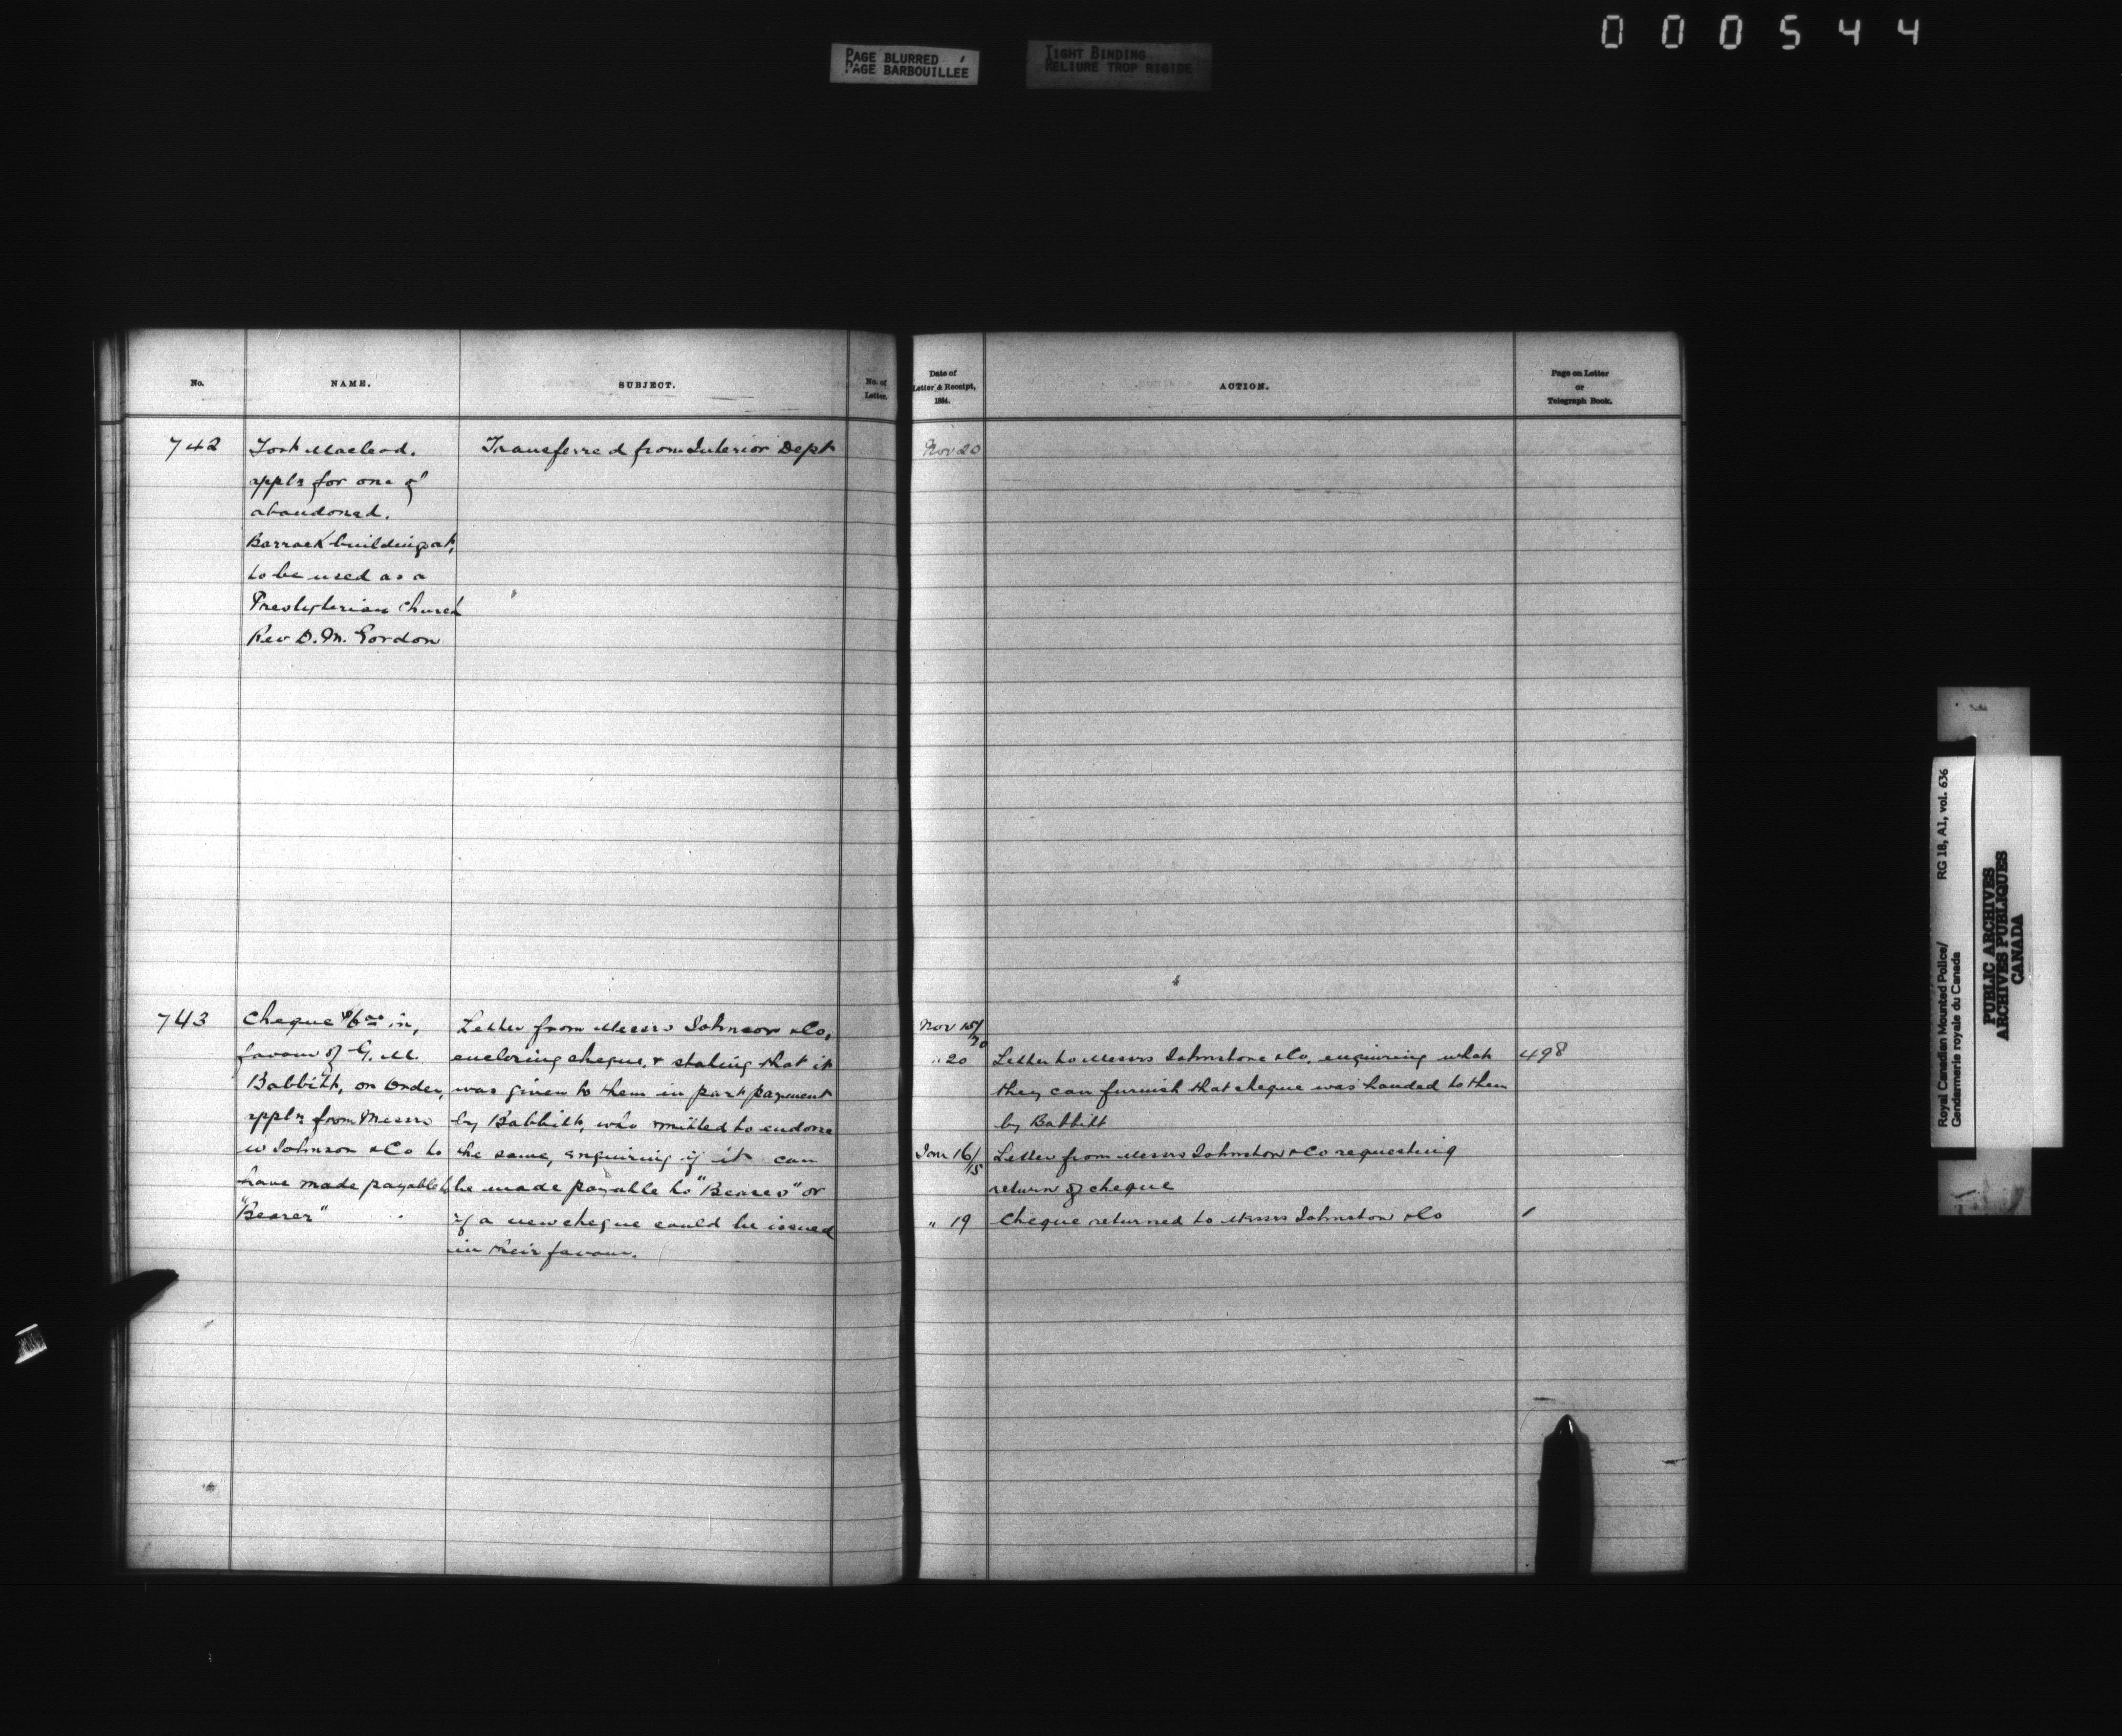 000544
PAGE BLURRED
PAGE BARBOUILLEE
TIGHT BINDING
RELIURE TROP RIGIDE
No.
NAME.
SUBJECT.
No. of
Letter.
Date of
Letter & Receipt,
1884.
ACTION.
Page on Letter
or
Telegraph Book.
742
Fort Macleod.
appln for one of
abandoned.
Barrack buildings at,
to be used as a
Presbyterian Church
Rev D. M. Gordon
Transferred from Interior Dept
Nov 20
743
Cheque $6 00 in,
favour of G. M.
Babbitt, on Order,
appln from Messrs
W Johnson & Co to
have made payable to
"Bearer"
Letter from Messrs Johnson & Co,
enclosing cheque, & stating that it
was given to them in part payment
by Babbitt, who omitted to endorse
the same, enquiring if it can
be made payable to "Bearer" or
if a new cheque could be issued
in their favour.
Nov 15/20
" 20
Letter to Messrs Johnstone & Co. enquiring what
they can furnish that cheque was handed to them
by Babbitt
498
Jan 16/15
Letter from Messrs Johnston & Co requesting
return of cheque
" 19
Cheque returned to Messrs Johnston & Co
1
Royal Canadian Mounted Police/
Gendarmerie royale du Canada
RG 18, A1, vol. 636
PUBLIC ARCHIVES
ARCHIVES PUBLIQUES
CANADA